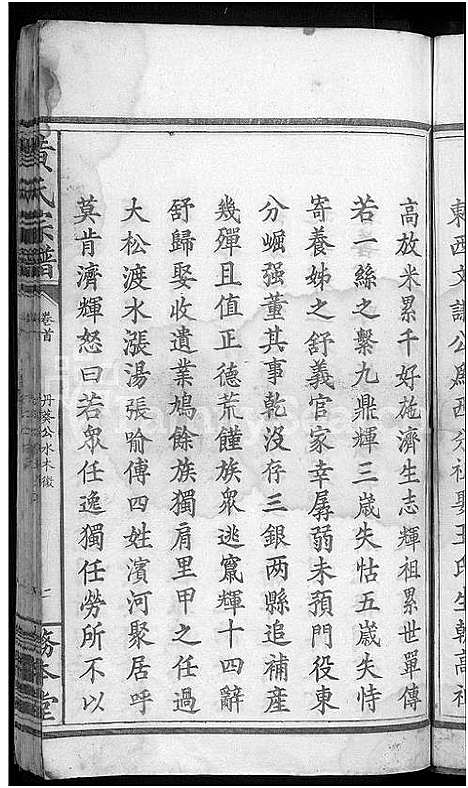 東西文謨公爲西分社娶王氏生乾高祖
高放米累千好施濟生志輝祖累世單傳
若一絲之繫九鼎輝三歲失怙五歲失恃
寄養姊之舒義官家幸孱弱未預門役東
分崛强董其事乾没存三銀两縣追補產
幾殫且值正德荒饉族衆逃竄輝十四辭
舒歸娶收遺業鳩餘族獨肩里甲之任過
大松渡水漲湯張喻傅四姓濱河聚居呼
莫肯濟輝怒曰若衆任逸獨任勞所不以
黄氏宗譜
卷首
丹葵公水木徵
務本堂